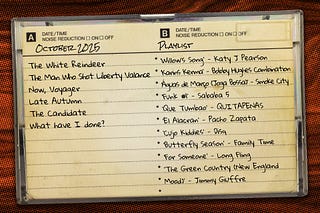 A DATE/TIME
NOISE REDUCTION ☐ ON ☐ OFF
OCTOBER 2025
The White Reindeer
The Man Who Shot Liberty Valance
Now, Voyager
Late Autumn
The Candidate
What Have I done?
B DATE/TIME
NOISE REDUCTION ☐ ON ☐ OFF
PLAYLIST
* 'Willow's Song' - Katy J Pearson
* 'Karis Kenma' - Bobby Hughes Combination
* 'Aguas de Março (Joga Bossa)' - Smoke City
* 'Funk #1' - Sababa 5
* 'Que Tumbao' - QUITAPENAS
* 'El Alacran' - Pacho Zapata
* 'Cujo Kiddies' -
* 'Butterfly Season' - Family Time
* 'For Someone' - Long Fling
* 'The Green Country (New England
* Mood)' - Jimmy Giuffre